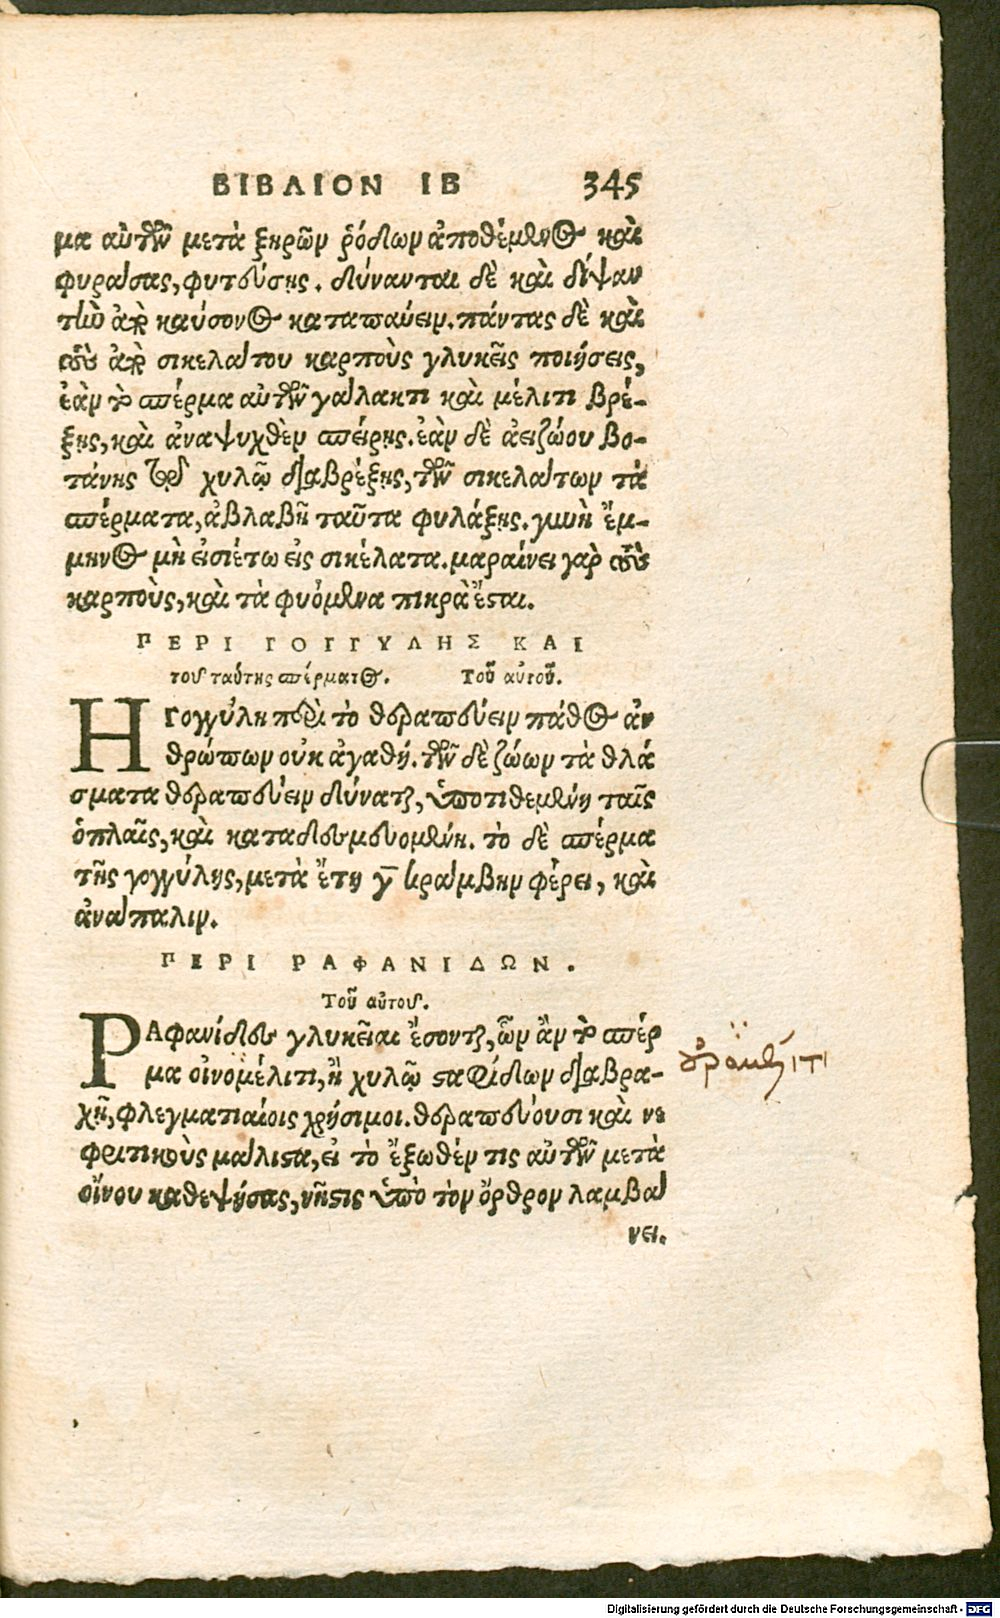 ΒΙΒΛΙΟΝ ΙΒ 345
μα αὐτῶν μετὰ ξηρῶν ῥόδων ἀποθέμενος καὶ
φυράσας, φυτεύσῃς. δύνανται δὲ καὶ δίψαν
τὴν ἀπὸ καύσονος καταπαύειν. πάντας δὲ καὶ
τοὺς ἀπὸ σικελάτου καρποὺς γλυκεῖς ποιήσεις,
ἐὰν τὸ σπέρμα αὐτῶν γάλακτι καὶ μέλιτι βρέ-
ξῃς, καὶ ἀναψυχθὲν σπείρῃς. ἐὰν δὲ ἀειζώου βο-
τάνης τῷ χυλῷ διαβρέξῃς, τῶν σικελάτων τὰ
σπέρματα, ἀβλαβῆ ταῦτα φυλάξῃς. γυνὴ ἔμ-
μηνος μὴ εἰσιέτω εἰς σικέλατα. μαραίνει γὰρ τοὺς
καρποὺς, καὶ τὰ φυόμενα πικρὰ ἔσται.
ΠΕΡΙ ΓΟΓΓΥΛΗΣ ΚΑΙ
του ταύτης σπέρματος. Τοῦ αὐτοῦ.
Η Γογγύλη περὶ τὸ θεραπεύειν πάθος ἀν
θρώπων οὐκ ἀγαθή. τῶν δὲ ζώων τὰ θλά
σματα θεραπεύειν δύναται, ὑποτιθεμένη ταῖς
ὁπλαῖς, καὶ καταδουμευομένη. τὸ δὲ σπέρμα
τῆς γογγύλης, μετὰ ἔτη γ̅ κράμβην φέρει, καὶ
ἀνάπαλιν.
ΠΕΡΙ ΡΑΦΑΝΙΔΩΝ.
Τοῦ αὐτου.
ΡΑφανίδου γλυκεῖαι ἔσονται, ὧν ἂν τὸ σπέρ
μα οἰνομέλιτι, ἢ χυλῷ σταφίδων διαβρα-
χῇ, φλεγματιαίοις χρήσιμοι. θεραπεύουσι καὶ νε
φριτικοὺς μάλιστα, εἰ τὸ ἔξωθέν τις αὐτῶν μετὰ
οἴνου καθεψήσας, νῆστις ὑπὸ τὸν ὄρθρον λαμβά
νει.
Digitalisierung gefördert durch die Deutsche Forschungsgemeinschaft - DFG